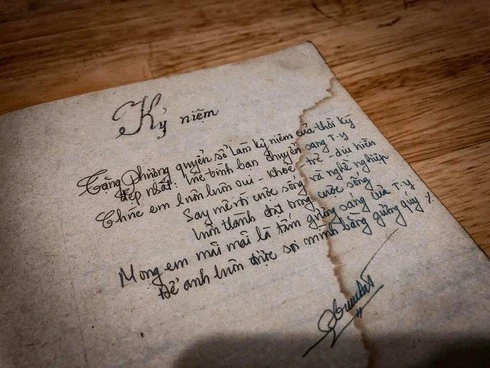 Kỷ niệm
Tặng Phương quyển sổ làm kỷ niệm của thời kỳ
đẹp nhất: Từ tình bạn chuyển sang T.y
Chúc em luôn luôn vui - khỏe - trẻ - dịu hiền
Say mê với cuộc sống và nghề nghiệp
luôn thành đạt trong cuộc sống
Mong em mãi mãi là tấm gương sáng của T.y
Để anh luôn được soi mình bằng gương quý